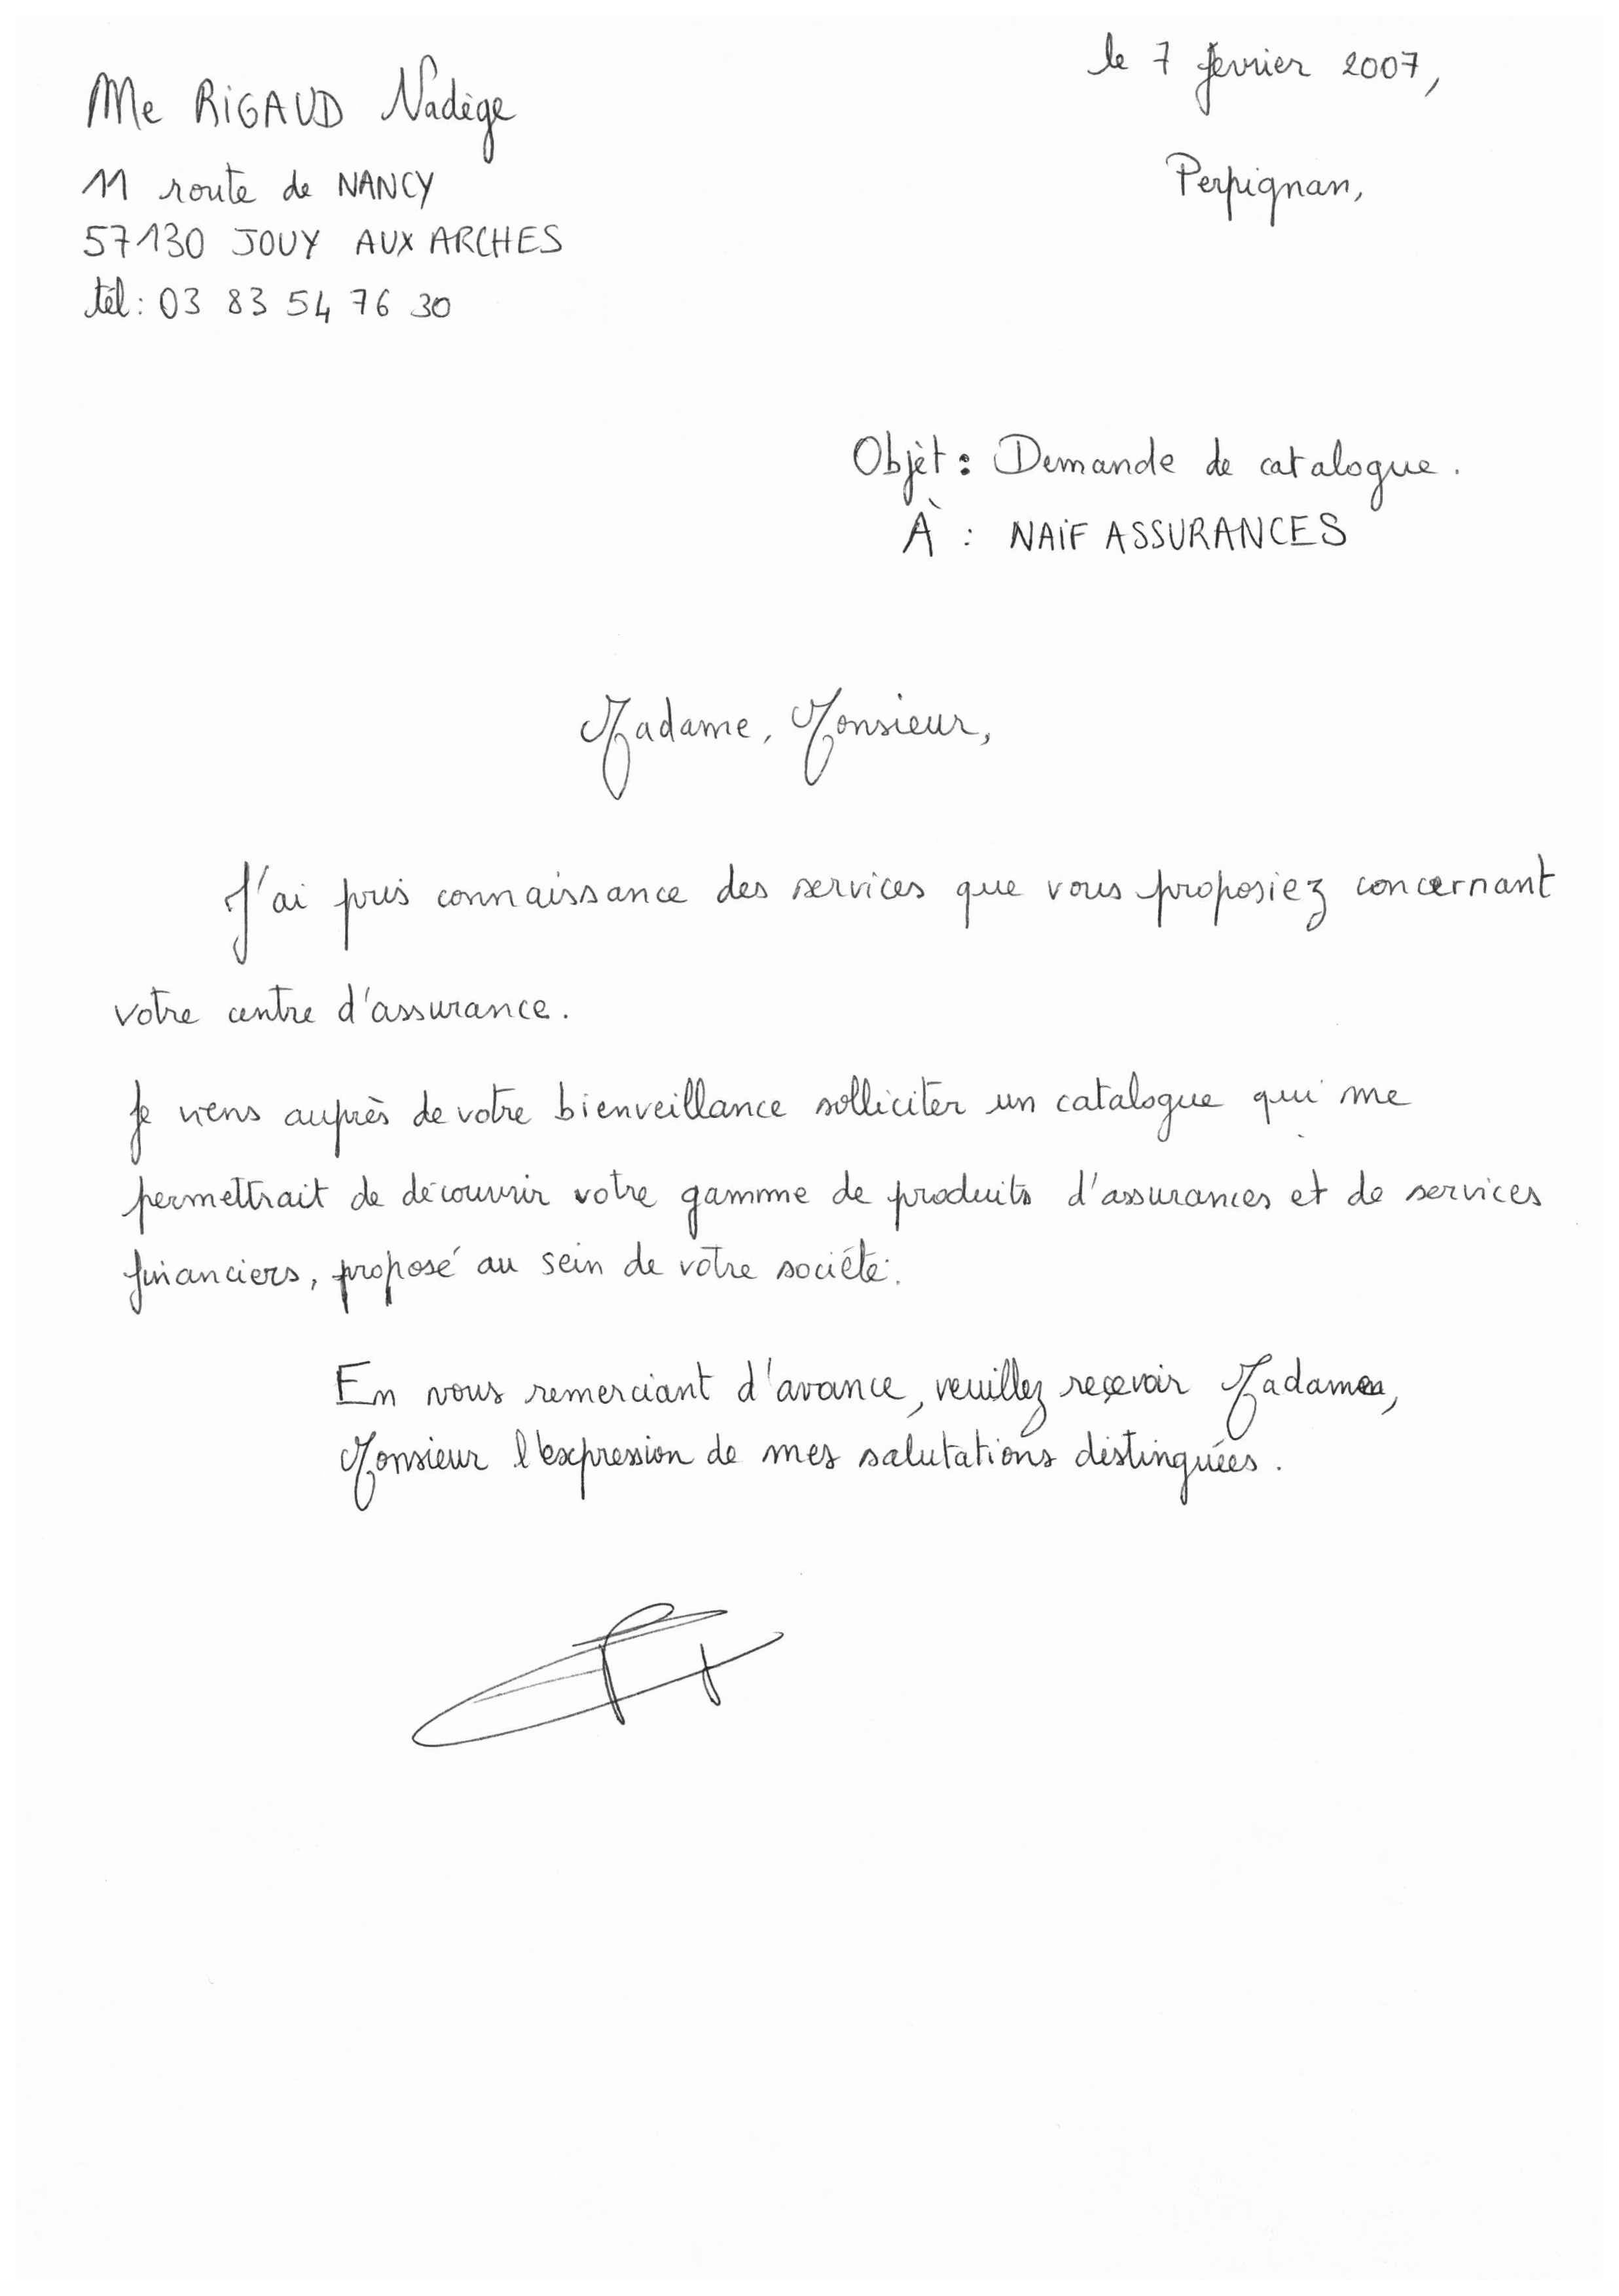 Me RIGAUD Nadège
11 route de NANCY
57130 JOUY AUX ARCHES
tél : 03 83 54 76 30
le 7 fevrier 2007,
Perpignan,
Objèt : Demande de catalogue.
À : NAIF ASSURANCES
Madame, Monsieur,
J'ai pris connaissance des services que vous proposiez concernant
votre centre d'assurance.
Je viens auprès de votre bienveillance solliciter un catalogue qui me
permettrait de découvrir votre gamme de produits d'assurances et de services
financiers, proposé au sein de votre société.
En vous remerciant d'avance, veuillez reçevoir
Monsieur l'expression de mes salutations distinguées.